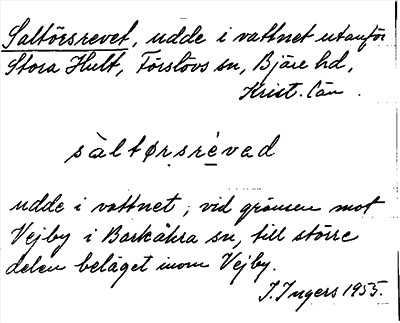 Saltörsrevet, udde i vattnet utanför
Stora Hult, Förslövs sn, Bjäre hd,
Krist. län.
sàltørsrévad
udde i vattnet, vid gränsen mot
Vejby i Barkåkra sn, till större
delen beläget inom Vejby.
I. Ingers 1955.